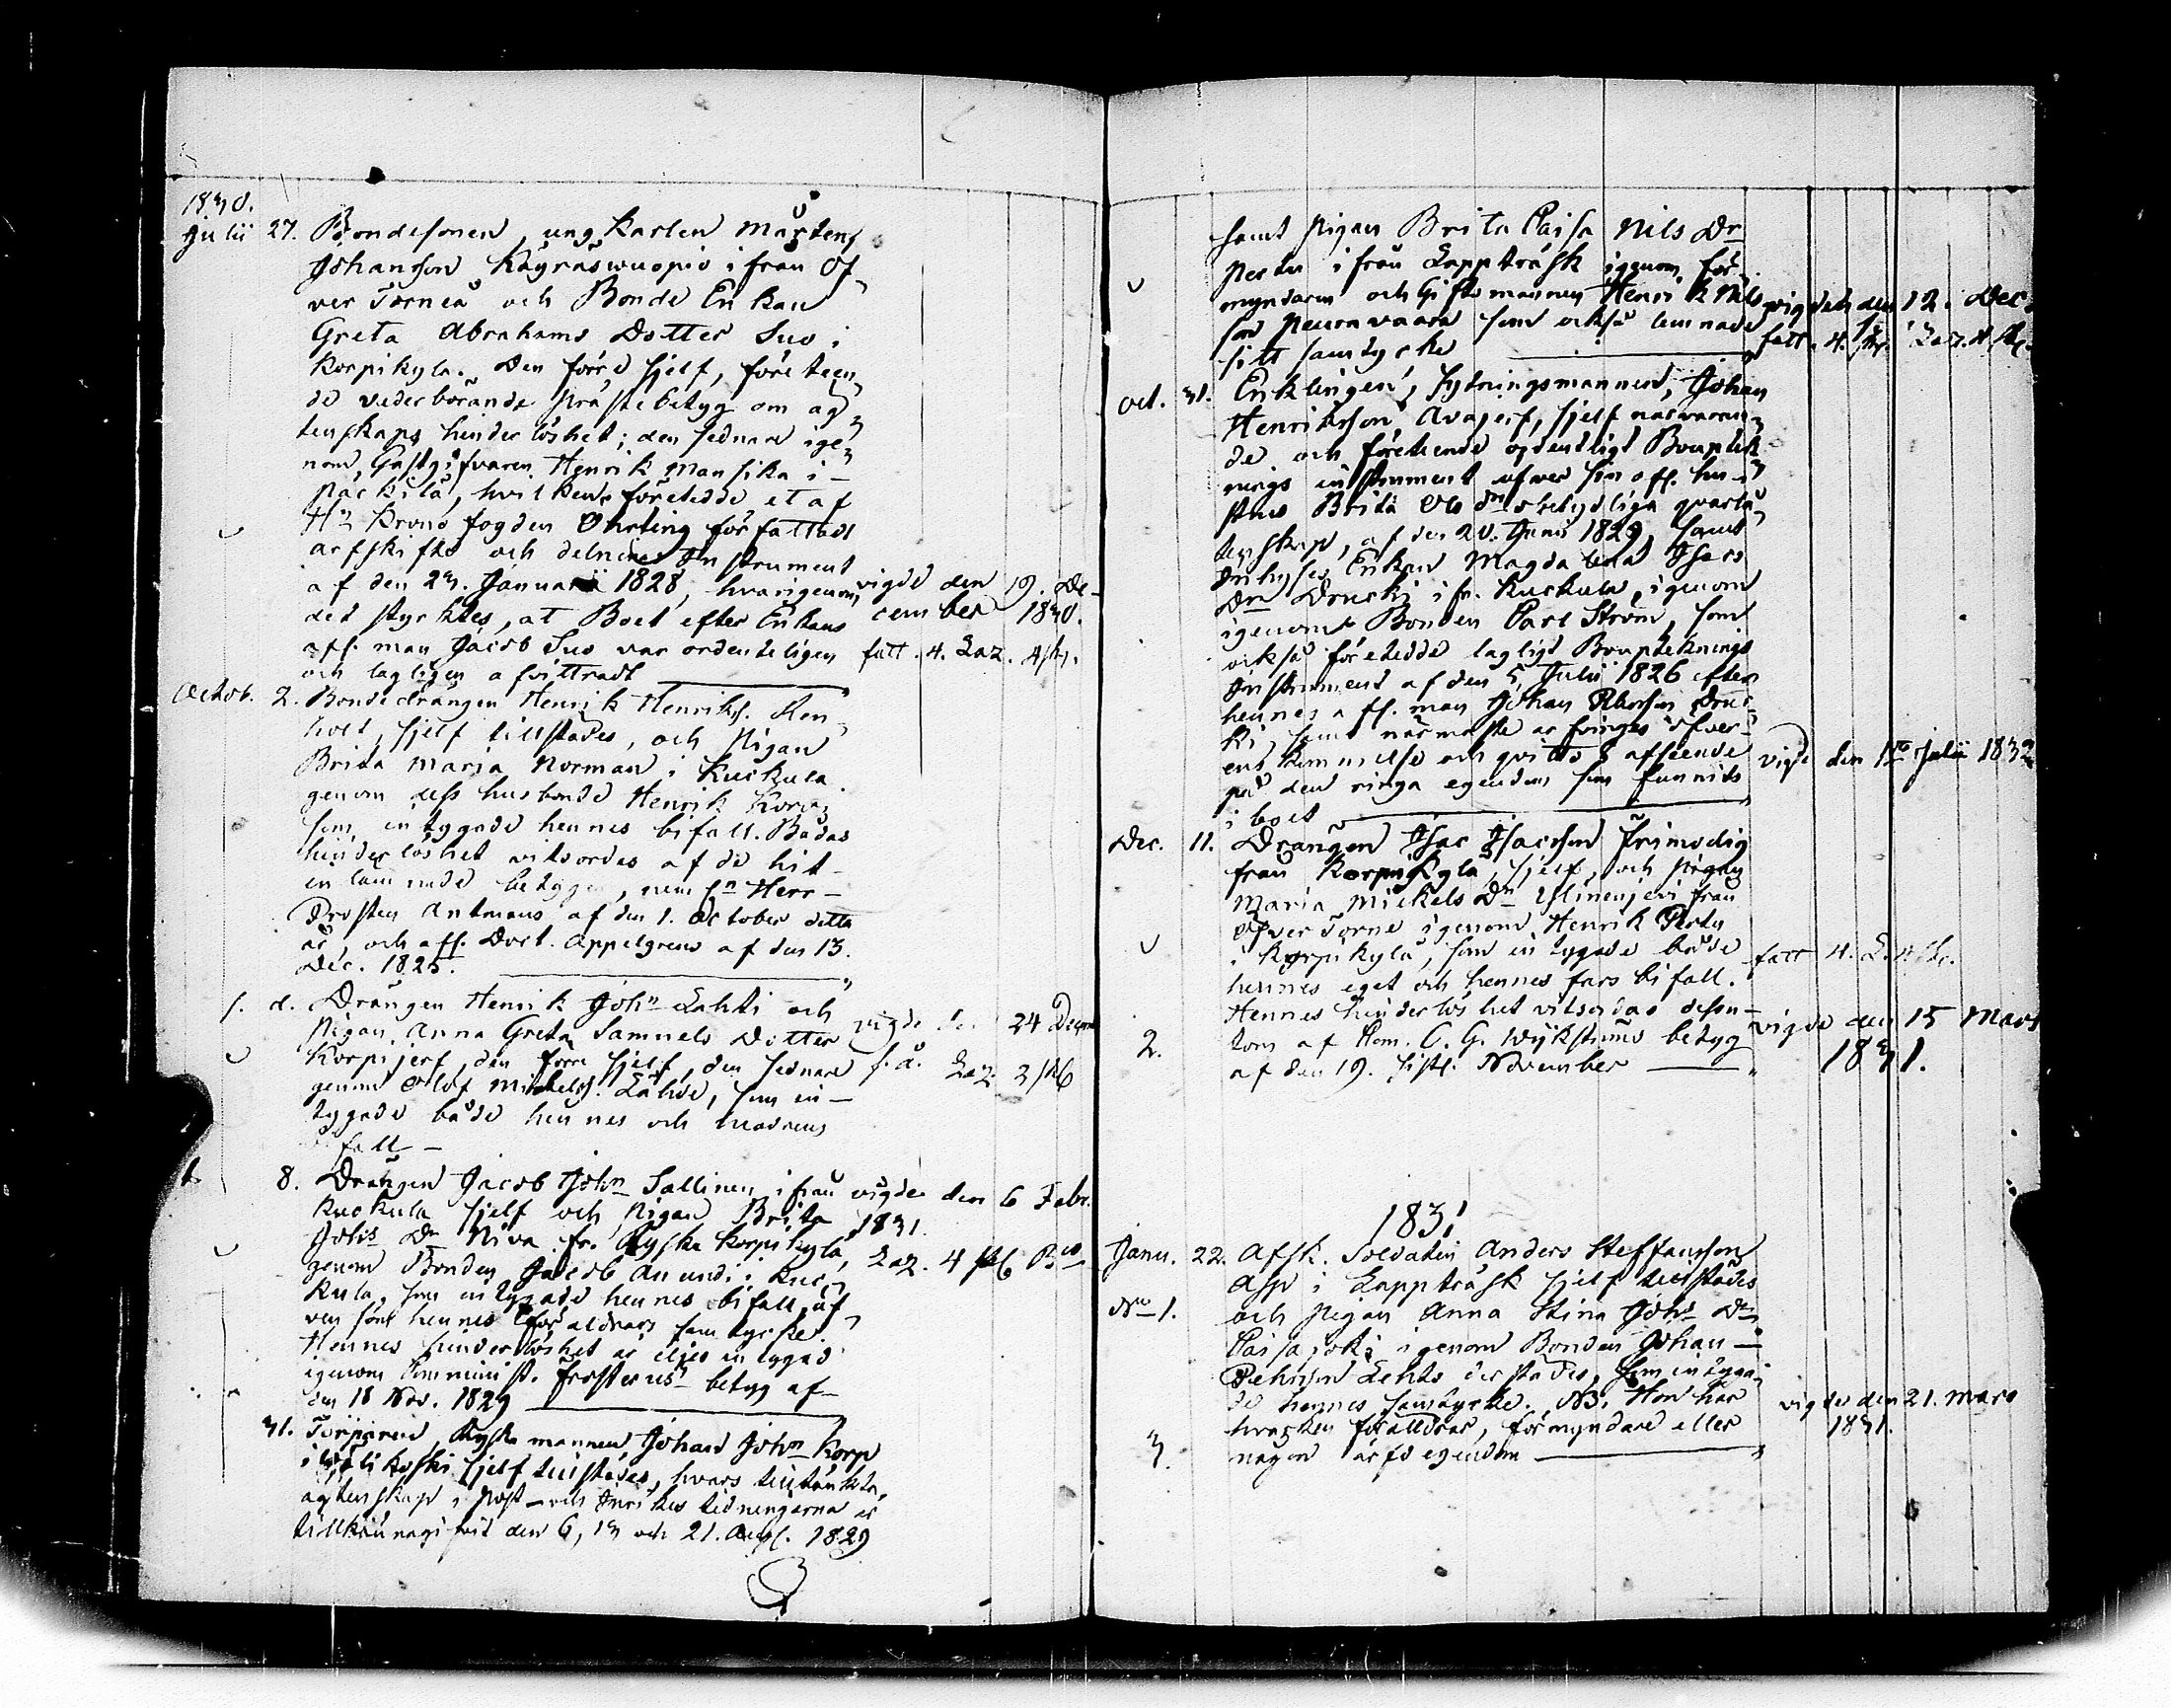 1830.
Julii 27. Bondesonen, ung Karlen Mårten
Johansson Käyräswuopio ifrån Öf-
ver Torneå och Bonde Enkan
Greta Abrahams Dotter Suo i
Korpikyla. Den förre sjelf, företeen-
de vederbörande prästebetyg om äg-
tenskaps hinderlöshet; den sednare ige-
nom Gästgifvaren Henrik Mansika i
Päckilä, hvilken företedde et af
Hr Krono fogden Ohrling författadt
arfskiftes och delnings Instrument
af den 23. Januarii 1828, hvarigenom
det styrktes, at Boet efter Enkans
afl. man Jacob Suo var ordenteligen
och lagligen afvittradt
vigde den 19. De-
cember 1830.
fatt. 4. Laz. 4 sk.
Octob. 2. Bondedrängen Henrik Henrikss.
sjelf tillstädes, och Pigan
Brita Maria Norman i Kuckula
genom dess husbonde Henrik Korpi
som intygade hennes bifall. Bådas
hinderlöshet vitsordas af de hit
inlämnade betygen, neml:n Herr
Prosten Antmans af den 1. October detta
år, och afl. Doct. Appelgrens af den 13.
Dec. 1825.
s. d. Drängen Henrik Joh:n Lahti och
Pigan Anna Greta Samuels Dotter
Korpijerf, den förre sjelf, den sednare
genom Olof Mickelss. Lahde, som in-
tygade både hennes och modrens
bifall
vigde den 24 Decem
s. å. Laz. 2 sk
8. Drängen Jacob Joh:n Sallinen ifrån
Kuckula sjelf och Pigan Brita
Joh:s D:r Niva fr. Ryska Korpikylä,
genom Bonden Jacob Anundi i Kuc-
kula, som intygade hennes bifall, äf-
ven som hennes föräldrars samtycke.
Hennes hinderlöshet är intygad
igenom Comminist. Frosterus betyg af
den 18 Nov. 1829
vigde den 6 Febr.
1831.
Laz. 4 sk B:co
31. Torparen, Ryska mannen Johan Joh:n Korpi
i sjelf tillstädes, hvars tilltänkta
ägtenskap i Post- och Inrikes tidningarna är
tillkännagifvit den 6, 13 och 21. Aug. 1829
samt Pigan Brita Caisa Nils Dr
Perttu ifrån Lappträsk igenom för-
myndaren och Giftomannen Henrik Nils-
son Peuravaara som också lemnade
sitt samtycke
vigdes den 12. Dec.
fatt. 4. sk. Laz. 4. sk.
Oct. 31. Enklingen, Sytningsmannen, Johan
Henriksson Avajerf, sjelf närvaran-
de och företeende ordentligt Boupteck-
nings instrument öfver sin afl. hu-
strus Brita Ols D:r obetydliga qvarlå-
tenskap, af den 20. Junii 1829, samt
Inhyses Enkan Magdalena Isacs
Dr Drucki i fr. Kuckula, igenom
igenom Bonden Carl Ström, som
också företedde lagligt Bouptecknings
Instrument af den 5 Julii 1826 efter
hennes afl. man Johan Druc-
ki, samt närmaste arfvinges öfver-
enskommelse och qvitto i afseende
på den ringa egendom som funnits
i boet
vigde den 1:o Julii 1832
Dec. 11. Drängen Isac Isacsson Frimodig
från Korpikylä, sjelf, och Pigan
Maria Mickels D:r Ylinenjervi från
Öfver Torne igenom Henrik Perttu
i Korpikylä, som intygade både
hennes eget och hennes fars bifall.
Hennes hinderlöshet vitsordas dessu-
tom af Com. C. G. Wikströms betyg
af den 19. sistl. November
fatt 4. L. n sk.
vigde den 15 Mars
1831.
2.
1831
Janu. 22. Afsk. Soldaten Anders Steffansson
Asp i Lappträsk sjelf tillstädes
No 1. och Pigan Anna Stina Joh:s D:r
Caisajoki igenom Bonden Johan
Pehrsson Lehto derstädes, som intyga-
de hennes samtycke. NB. Hon har
hvarken föräldrar, förmyndare eller
någon ärfd egendom
vigdes den 21. Mars
1831.
3.